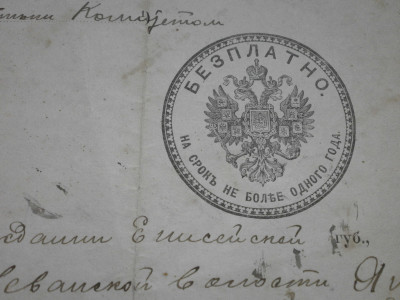 Комитетом
БЕЗПЛАТНО.
НА СРОКЪ НЕ БОЛѢЕ ОДНОГО ГОДА.
Енисейской губ.,
волости